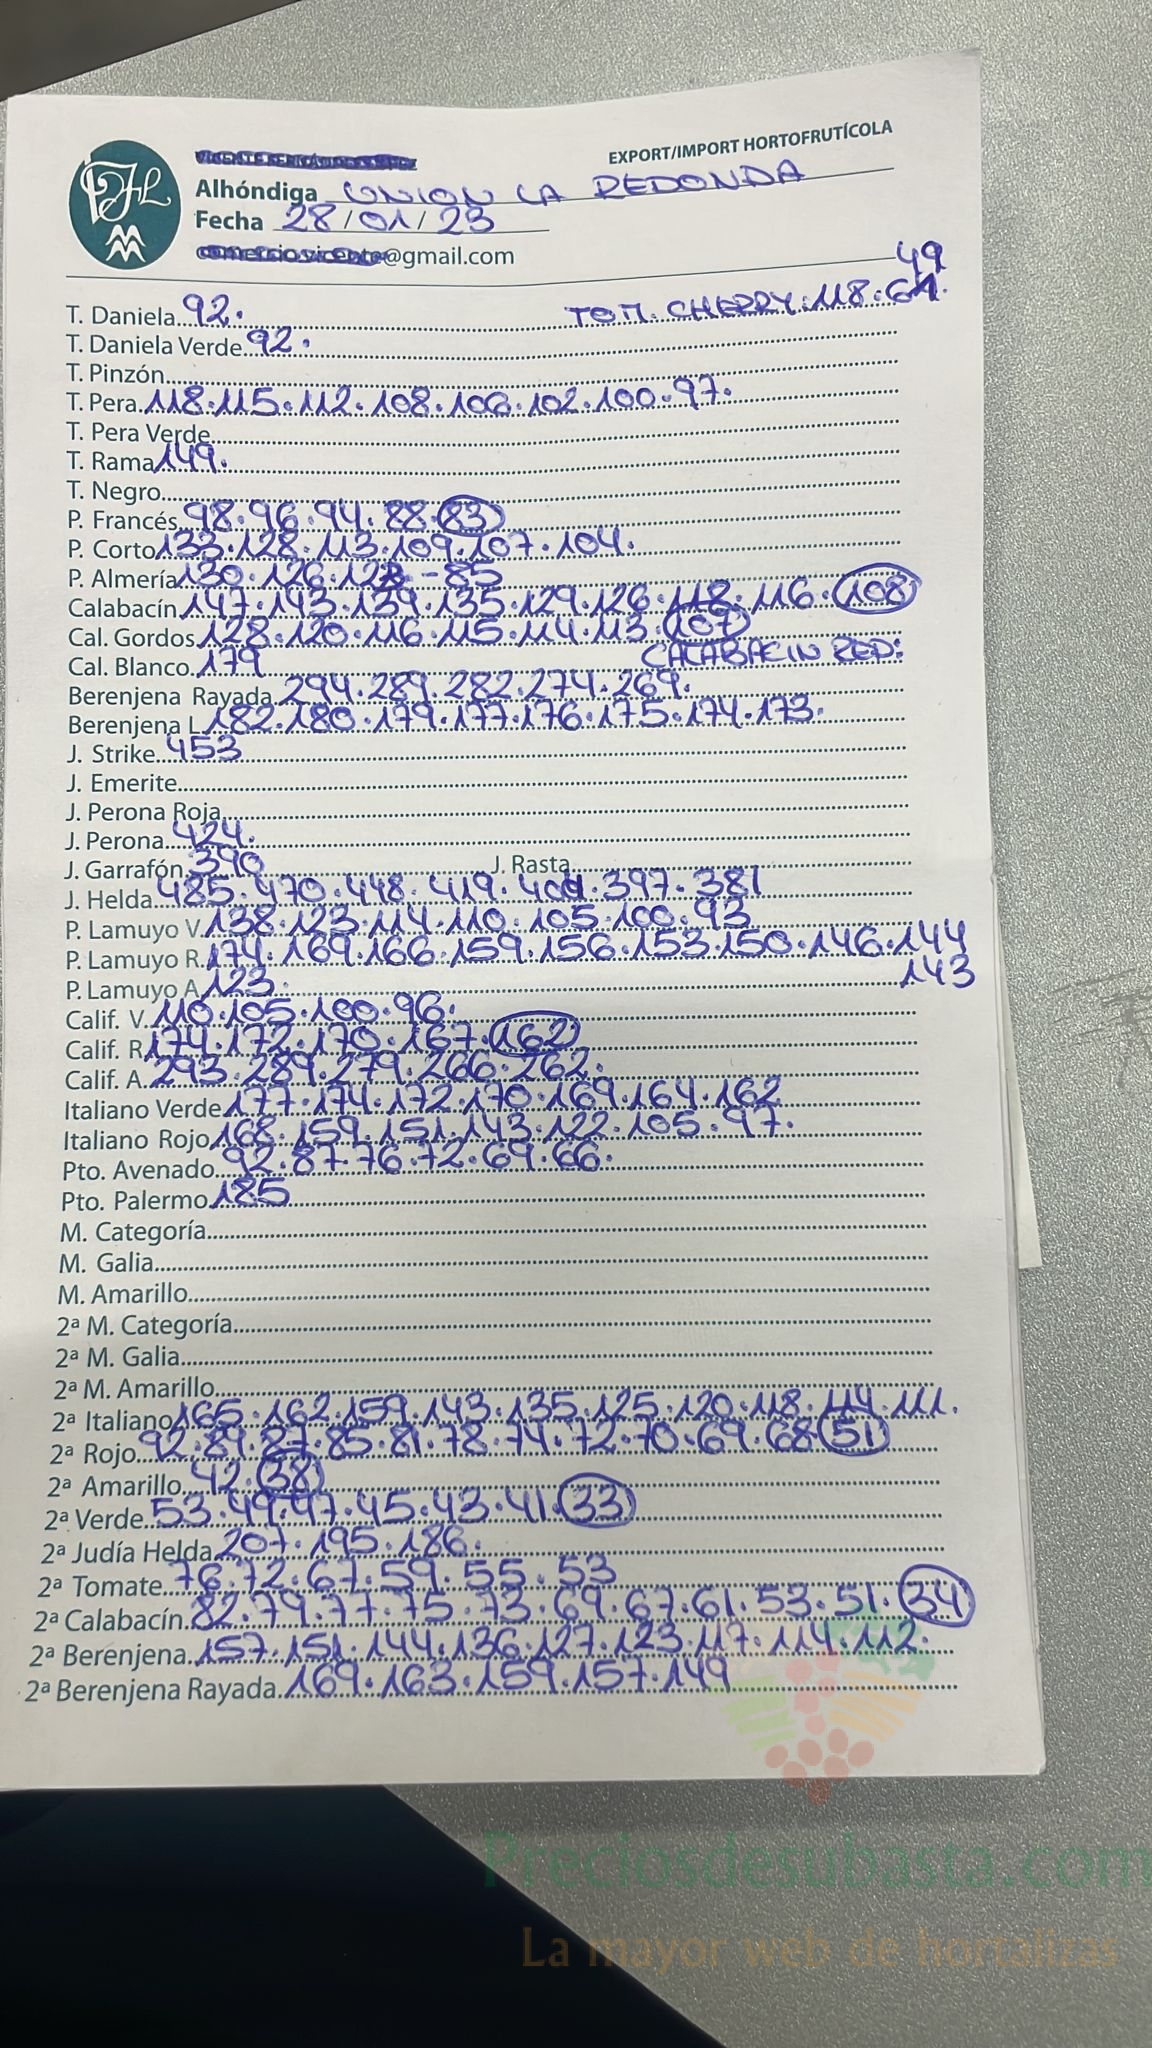 EXPORT/IMPORT HORTOFRUTÍCOLA
Alhóndiga UNION LA REDONDA
Fecha 28/01/23
@gmail.com
49
T. Daniela 92. TOM. CHERRY: 118. 64.
T. Daniela Verde 92.
T. Pinzón
T. Pera 118.115.112.108.106.102.100.97.
T. Pera Verde
T. Rama 149.
T. Negro
P. Francés 98.96.94.88.83
P. Corto 133.128.113.109.107.104.
P. Almería 130.126. -85
Calabacín 147.143.139.135.129.126.118.116.108
Cal. Gordos 128.120.116.115.114.113.107
Cal. Blanco 179 CALABACIN RED:
Berenjena Rayada 294.289.282.274.269.
Berenjena L 182.180.179.177.176.175.174.173.
J. Strike 453
J. Emerite
J. Perona Roja
J. Perona 424.
J. Garrafón 390 J. Rasta
J. Helda 485.470.448.419.404.397.381
P. Lamuyo V. 138.123.114.110.105.100.93
P. Lamuyo R. 174.169.166.159.156.153.150.146.144
143
P. Lamuyo A 123.
Calif. V. 110.105.100.96.
Calif. R 174.172.170.167.162
Calif. A. 293.289.279.266.262.
Italiano Verde 177.174.172.170.169.164.162
Italiano Rojo 168.159.151.143.122.105.97.
Pto. Avenado 92.87.76.72.69.66.
Pto. Palermo 185
M. Categoría
M. Galia
M. Amarillo
2ª M. Categoría
2ª M. Galia
2ª M. Amarillo
2ª Italiano 165.162.159.143.135.125.120.118.114.111.
2ª Rojo 92.89.87.85.81.78.74.72.70.69.68.51
2ª Amarillo 42.38
2ª Verde 53.49.47.45.43.41.33
2ª Judía Helda 207.195.186.
2ª Tomate 76.72.67.59.55.53
2ª Calabacín 82.79.77.75.73.69.67.61.53.51.34
2ª Berenjena 157.151.144.136.127.123.117.114.112.
2ª Berenjena Rayada 169.163.159.157.149
Preciosdesubasta.com
La mayor web de hortalizas